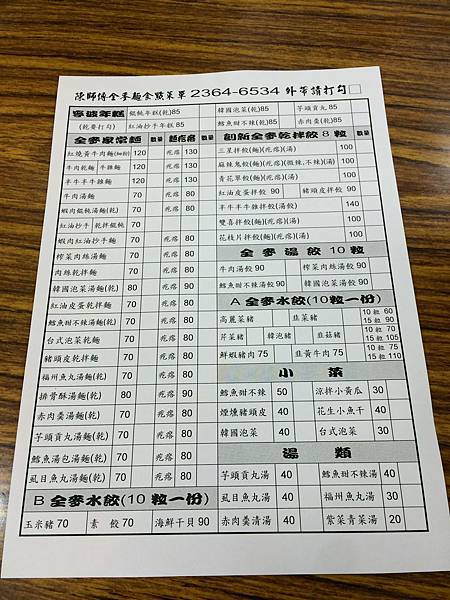 陳師傅全麥麵食點菜單 2364-6534 外帶請打勾□
寧波年糕 餛飩年糕(乾)85 韓國泡菜(乾)85 芋頭貢丸 85
(乾要打勾) 紅油抄手年糕 85 鱈魚甜不辣(乾)85 赤肉羹(乾)85
全麥家常麵 數量 麵疙瘩 數量
紅燒黃牛肉麵(細粉) 120 疙瘩 130
牛肉乾麵 牛雜麵 120 疙瘩 130
半牛半牛雜麵 120 疙瘩 130
牛肉湯麵 70 疙瘩 80
蝦肉餛飩湯麵(乾) 70 疙瘩 80
紅油抄手 乾拌餛飩 70
蝦肉紅油抄手麵 70 疙瘩 80
榨菜肉絲湯麵 70 疙瘩 80
肉絲乾拌麵 70 疙瘩 80
韓國泡菜湯麵(乾) 80 疙瘩 90
紅油皮蛋乾拌麵 70 疙瘩 80
鱈魚甜不辣湯麵(乾) 70 疙瘩 80
台式泡菜乾麵 70 疙瘩 80
豬頭皮乾拌麵 70 疙瘩 80
福州魚丸湯麵(乾) 70 疙瘩 80
排骨酥湯麵(乾) 80 疙瘩 90
赤肉羹湯麵(乾) 70 疙瘩 80
芋頭貢丸湯麵(乾) 70 疙瘩 80
鱈魚湯包湯麵(乾) 70 疙瘩 80
虱目魚丸湯麵(乾) 70 疙瘩 80
B 全麥水餃(10粒一份)
玉米豬 70 素 餃 70 海鮮干貝 90
創新全麥乾拌餃 8 粒 數量
三星拌餃(麵)(疙瘩)(湯) 100
麻辣鬼餃(麵)(疙瘩)(微辣,不辣)(湯) 100
青花單餃(麵)(疙瘩)(湯) 100
紅油皮蛋拌餃 90 豬頭皮拌餃 90
半牛半牛雜拌餃(湯) 140
雙喜拌餃(麵)(疙瘩)(湯) 100
花枝片拌餃(麵)(疙瘩)(湯) 100
全麥湯餃 10粒
牛肉湯餃 90 榨菜肉絲湯餃 90
鱈魚甜不辣湯餃 90 韓國泡菜湯餃 90
A 全麥水餃(10粒一份)
高麗菜豬 韭菜豬 10粒 60 15粒 90
芹菜豬 韓泡豬 韭菇豬 10粒 70 15粒 105
鮮蝦豬肉 75 韭黃牛肉 75 10粒 75 15粒 110
小菜
鱈魚甜不辣 50 涼拌小黃瓜 30
煙燻豬頭皮 40 花生小魚干 40
韓國泡菜 40 台式泡菜 30
湯類
芋頭貢丸湯 40 鱈魚甜不辣湯 40
虱目魚丸湯 40 福州魚丸湯 30
赤肉羹清湯 40 紫菜青菜湯 20